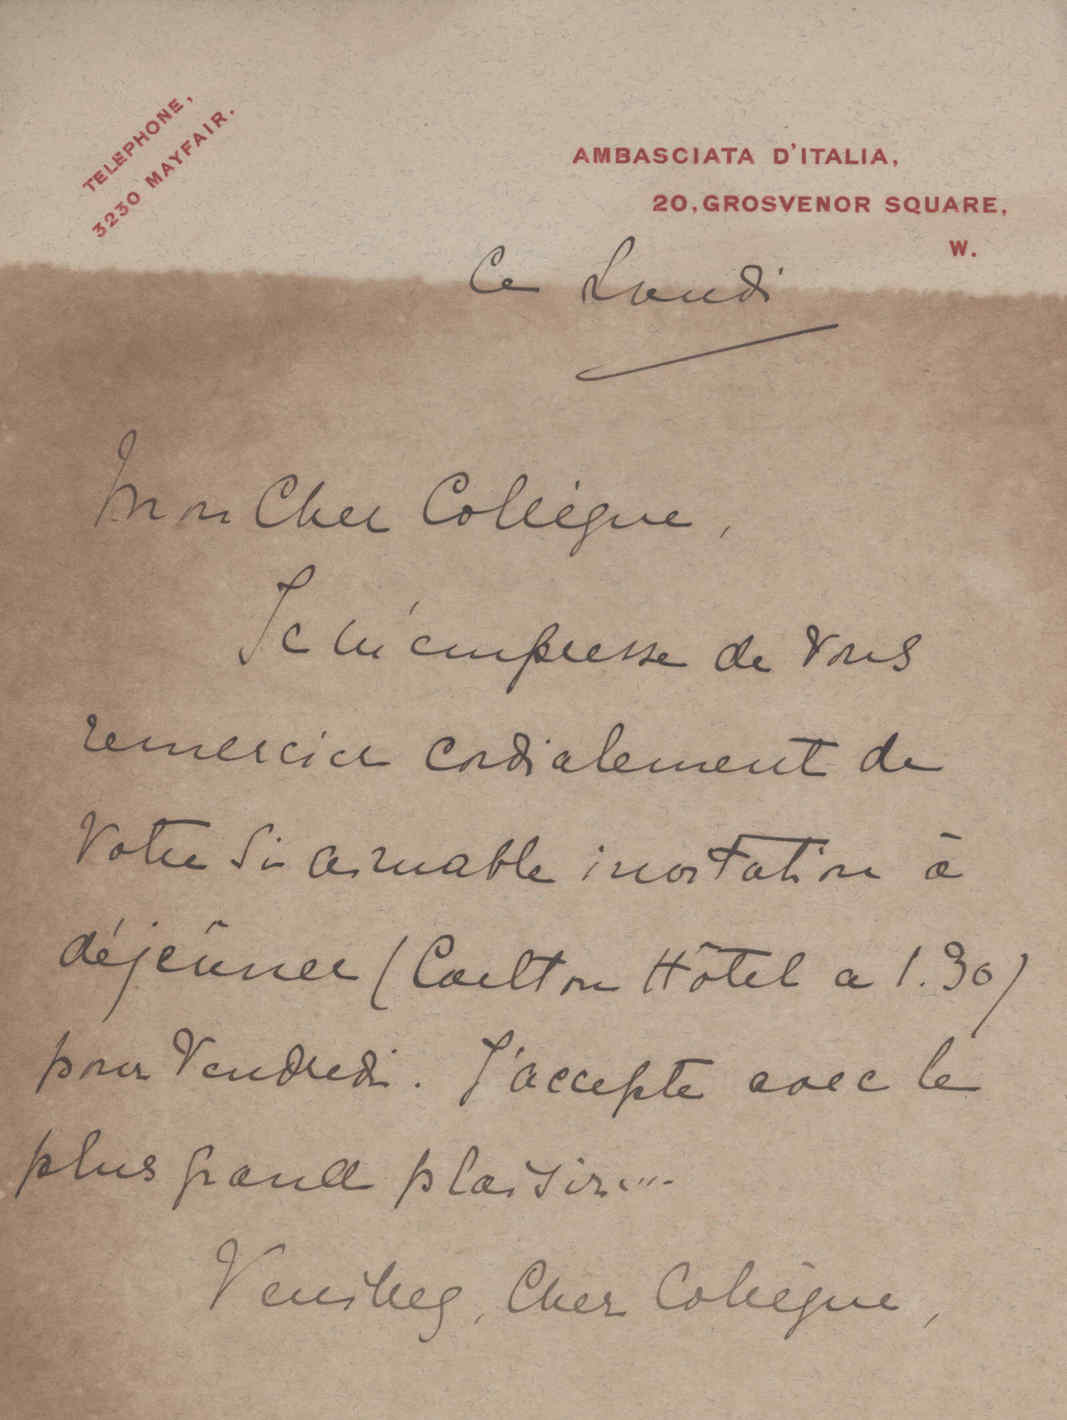 TELEPHONE,
3230 MAYFAIR.
AMBASCIATA D'ITALIA,
20, GROSVENOR SQUARE,
W.
Ce Lundi
Mon Cher Collègue,
Je m'empresse de Vous
remercier cordialement de
Votre si aimable invitation à
déjeûner (Carlton Hôtel a 1.30)
pour Vendredi. J'accepte avec le
plus grand plaisir...
Veuillez, Cher Collègue,